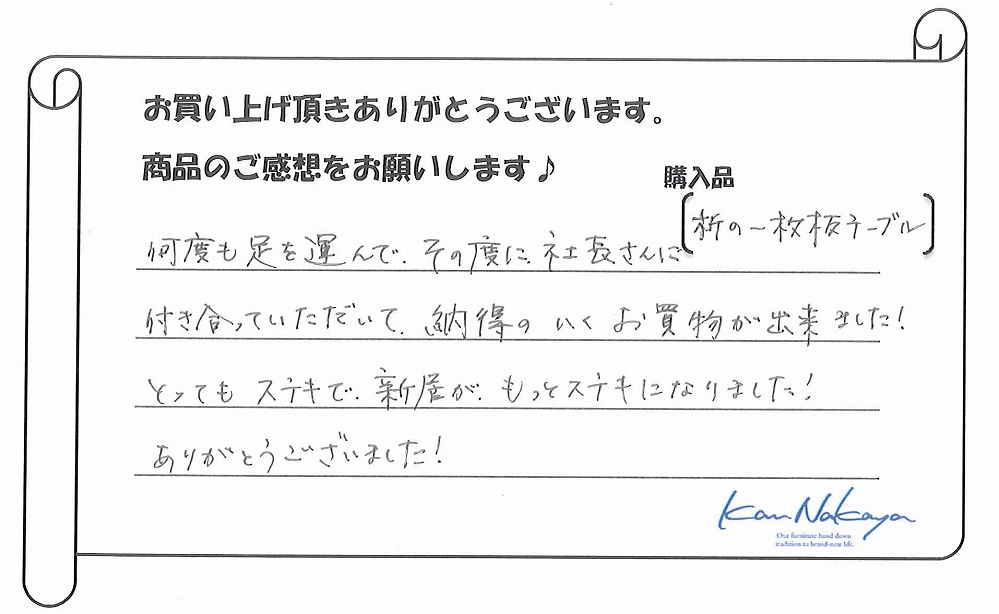 お買い上げ頂きありがとうございます。
商品のご感想をお願いします♪
購入品
析の一枚板テーブル
何度も足を運んで、その度に、社長さんに
付き合っていただいて、納得のいくお買物が出来ました!
とってもステキで、新居が、もっとステキになりました!
ありがとうございました!
Kan Nakaya
Our furniture hand down
tradition to brand-new life.